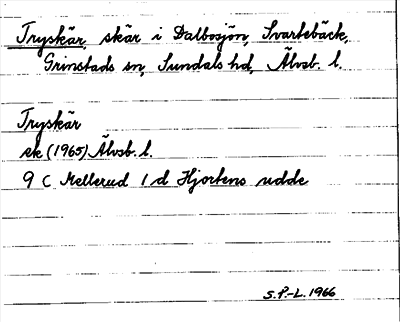 Tryskär, skär i Dalbosjön, Svartebäck,
Grinstads sn, Sundals hd, Älvsb. l.
Tryskär
ek (1965) Älvsb. l.
9 C Mellerud 1 d Hjortens udde
S.P.-L. 1966